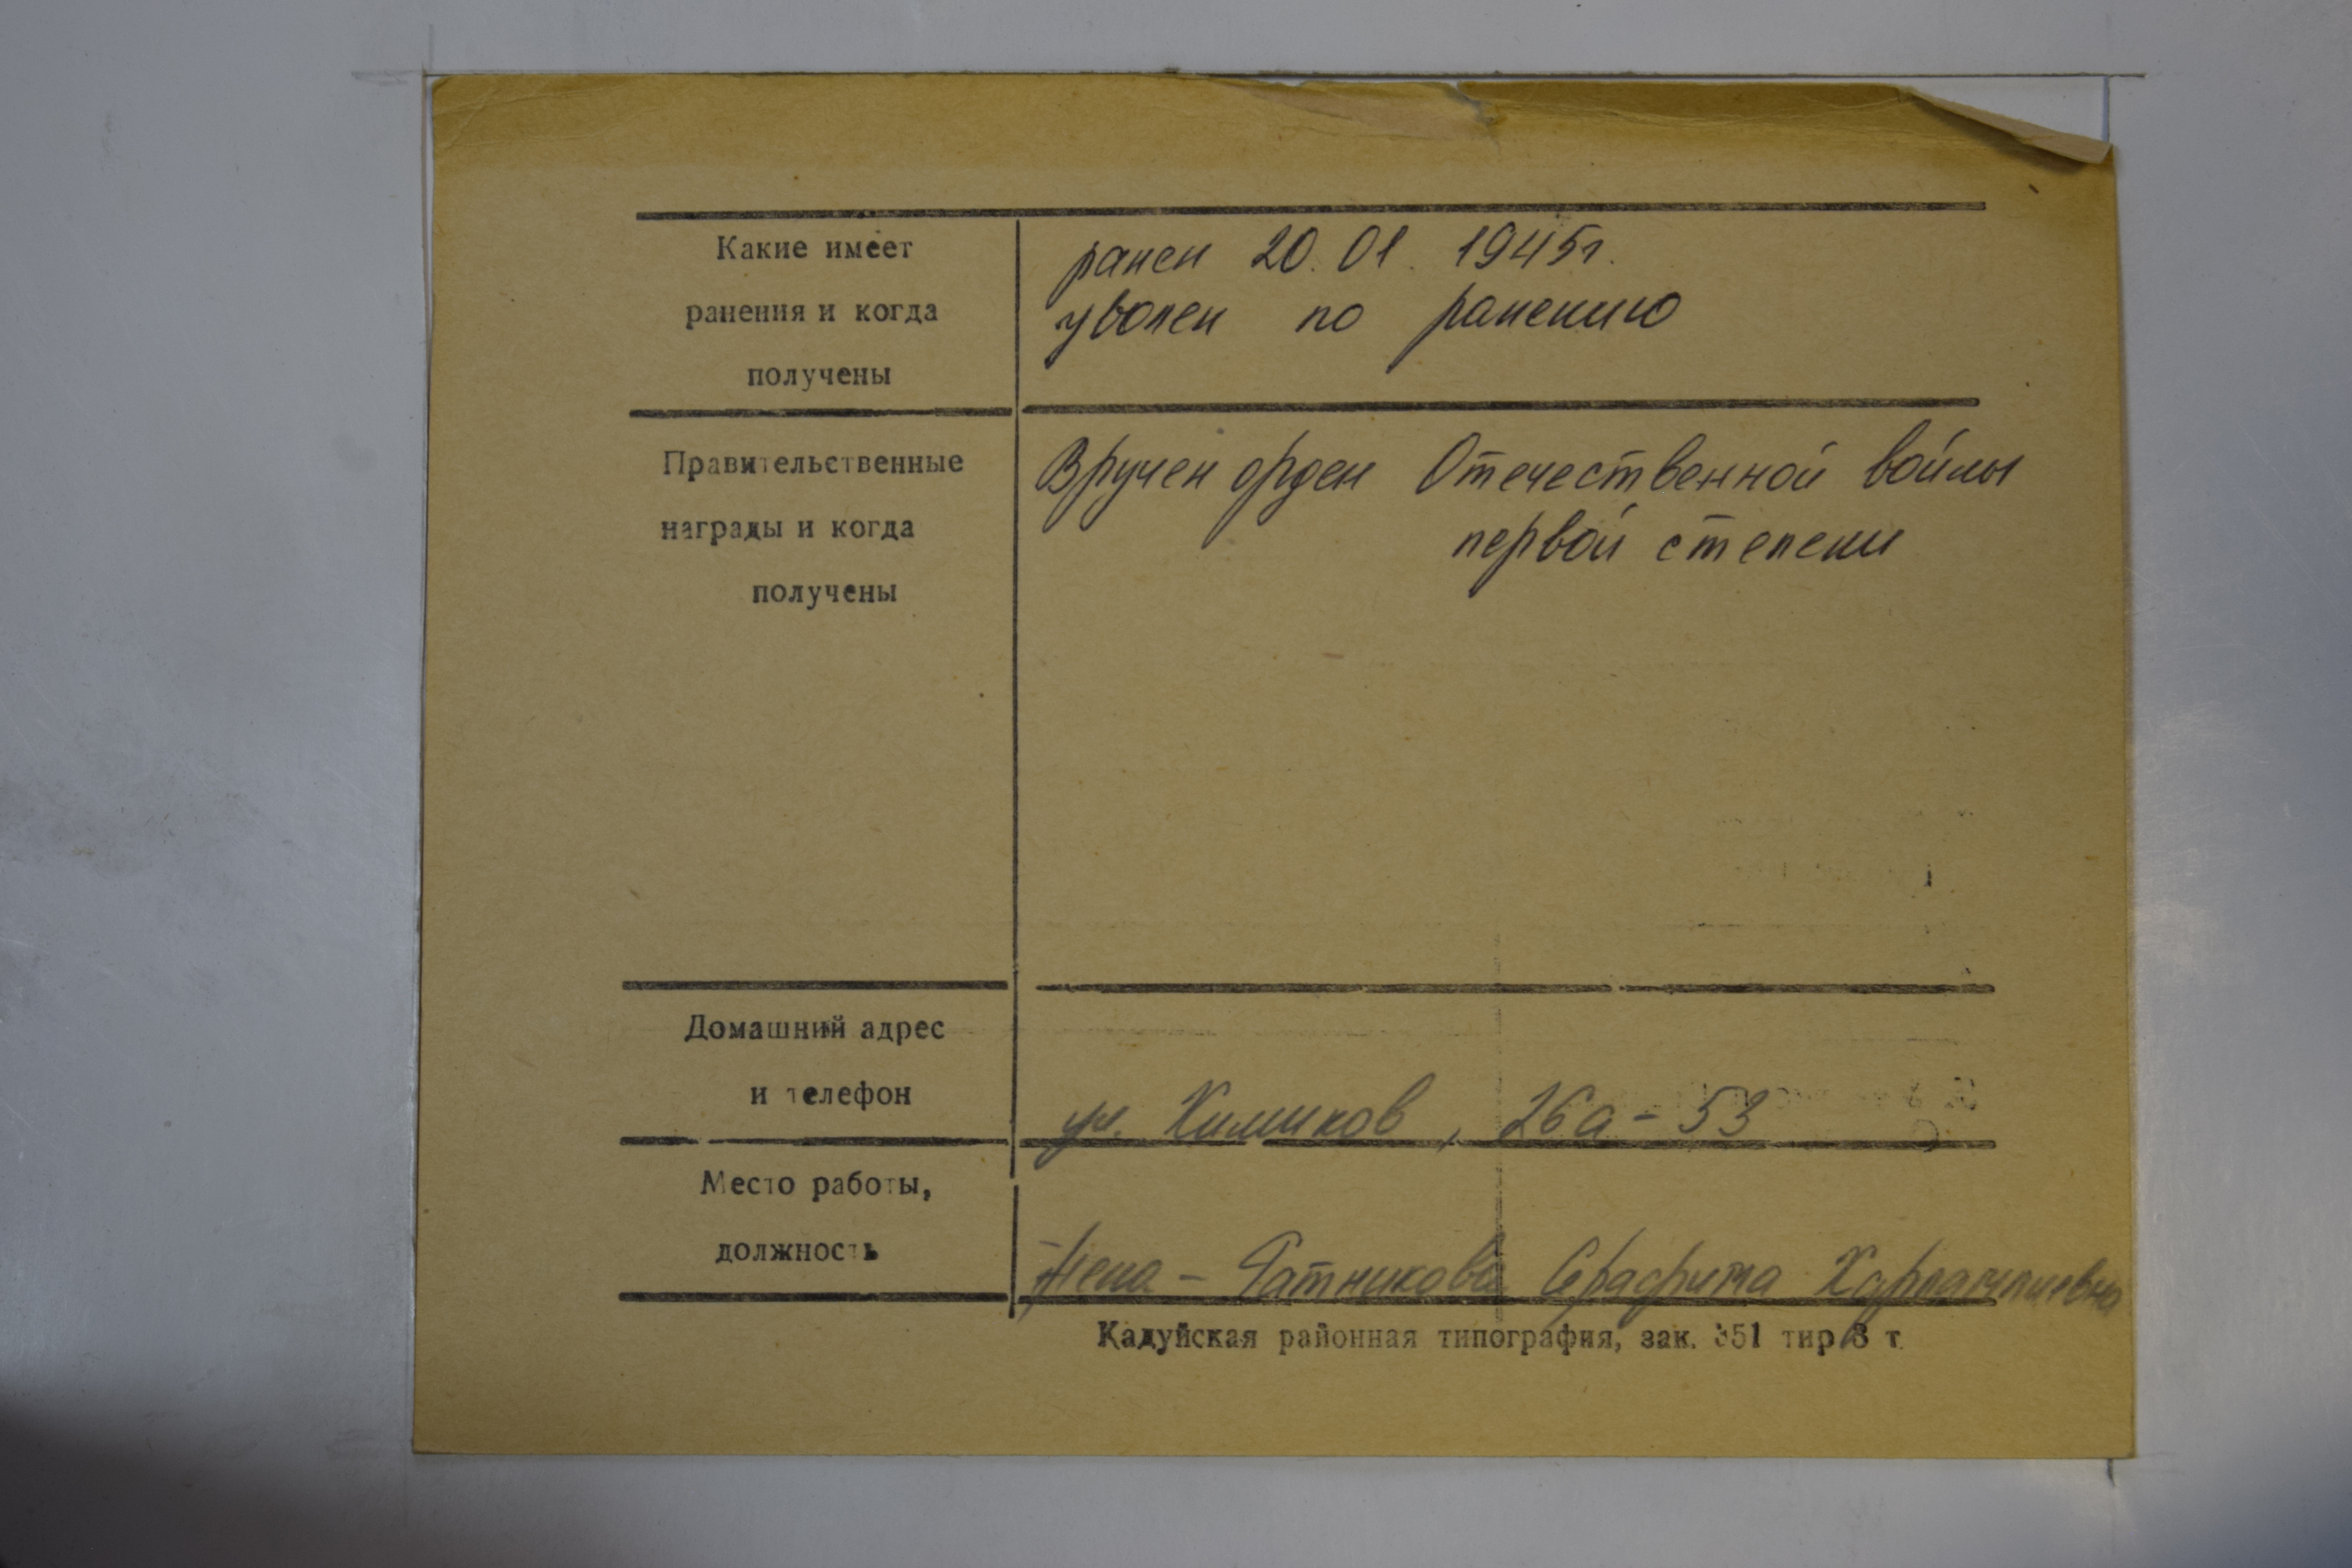 Какие имеет
ранения и когда
получены
ранен 20.01.1945г.
уволен по ранению
Правительственные
награды и когда
получены
Вручен орден Отечественной войны
первой степени
Домашний адрес
и телефон
ул. Химиков, 26а-53
Место работы,
должность
Жена - Ратникова
Кадуйская районная типография, зак. 351 тир 3 т.